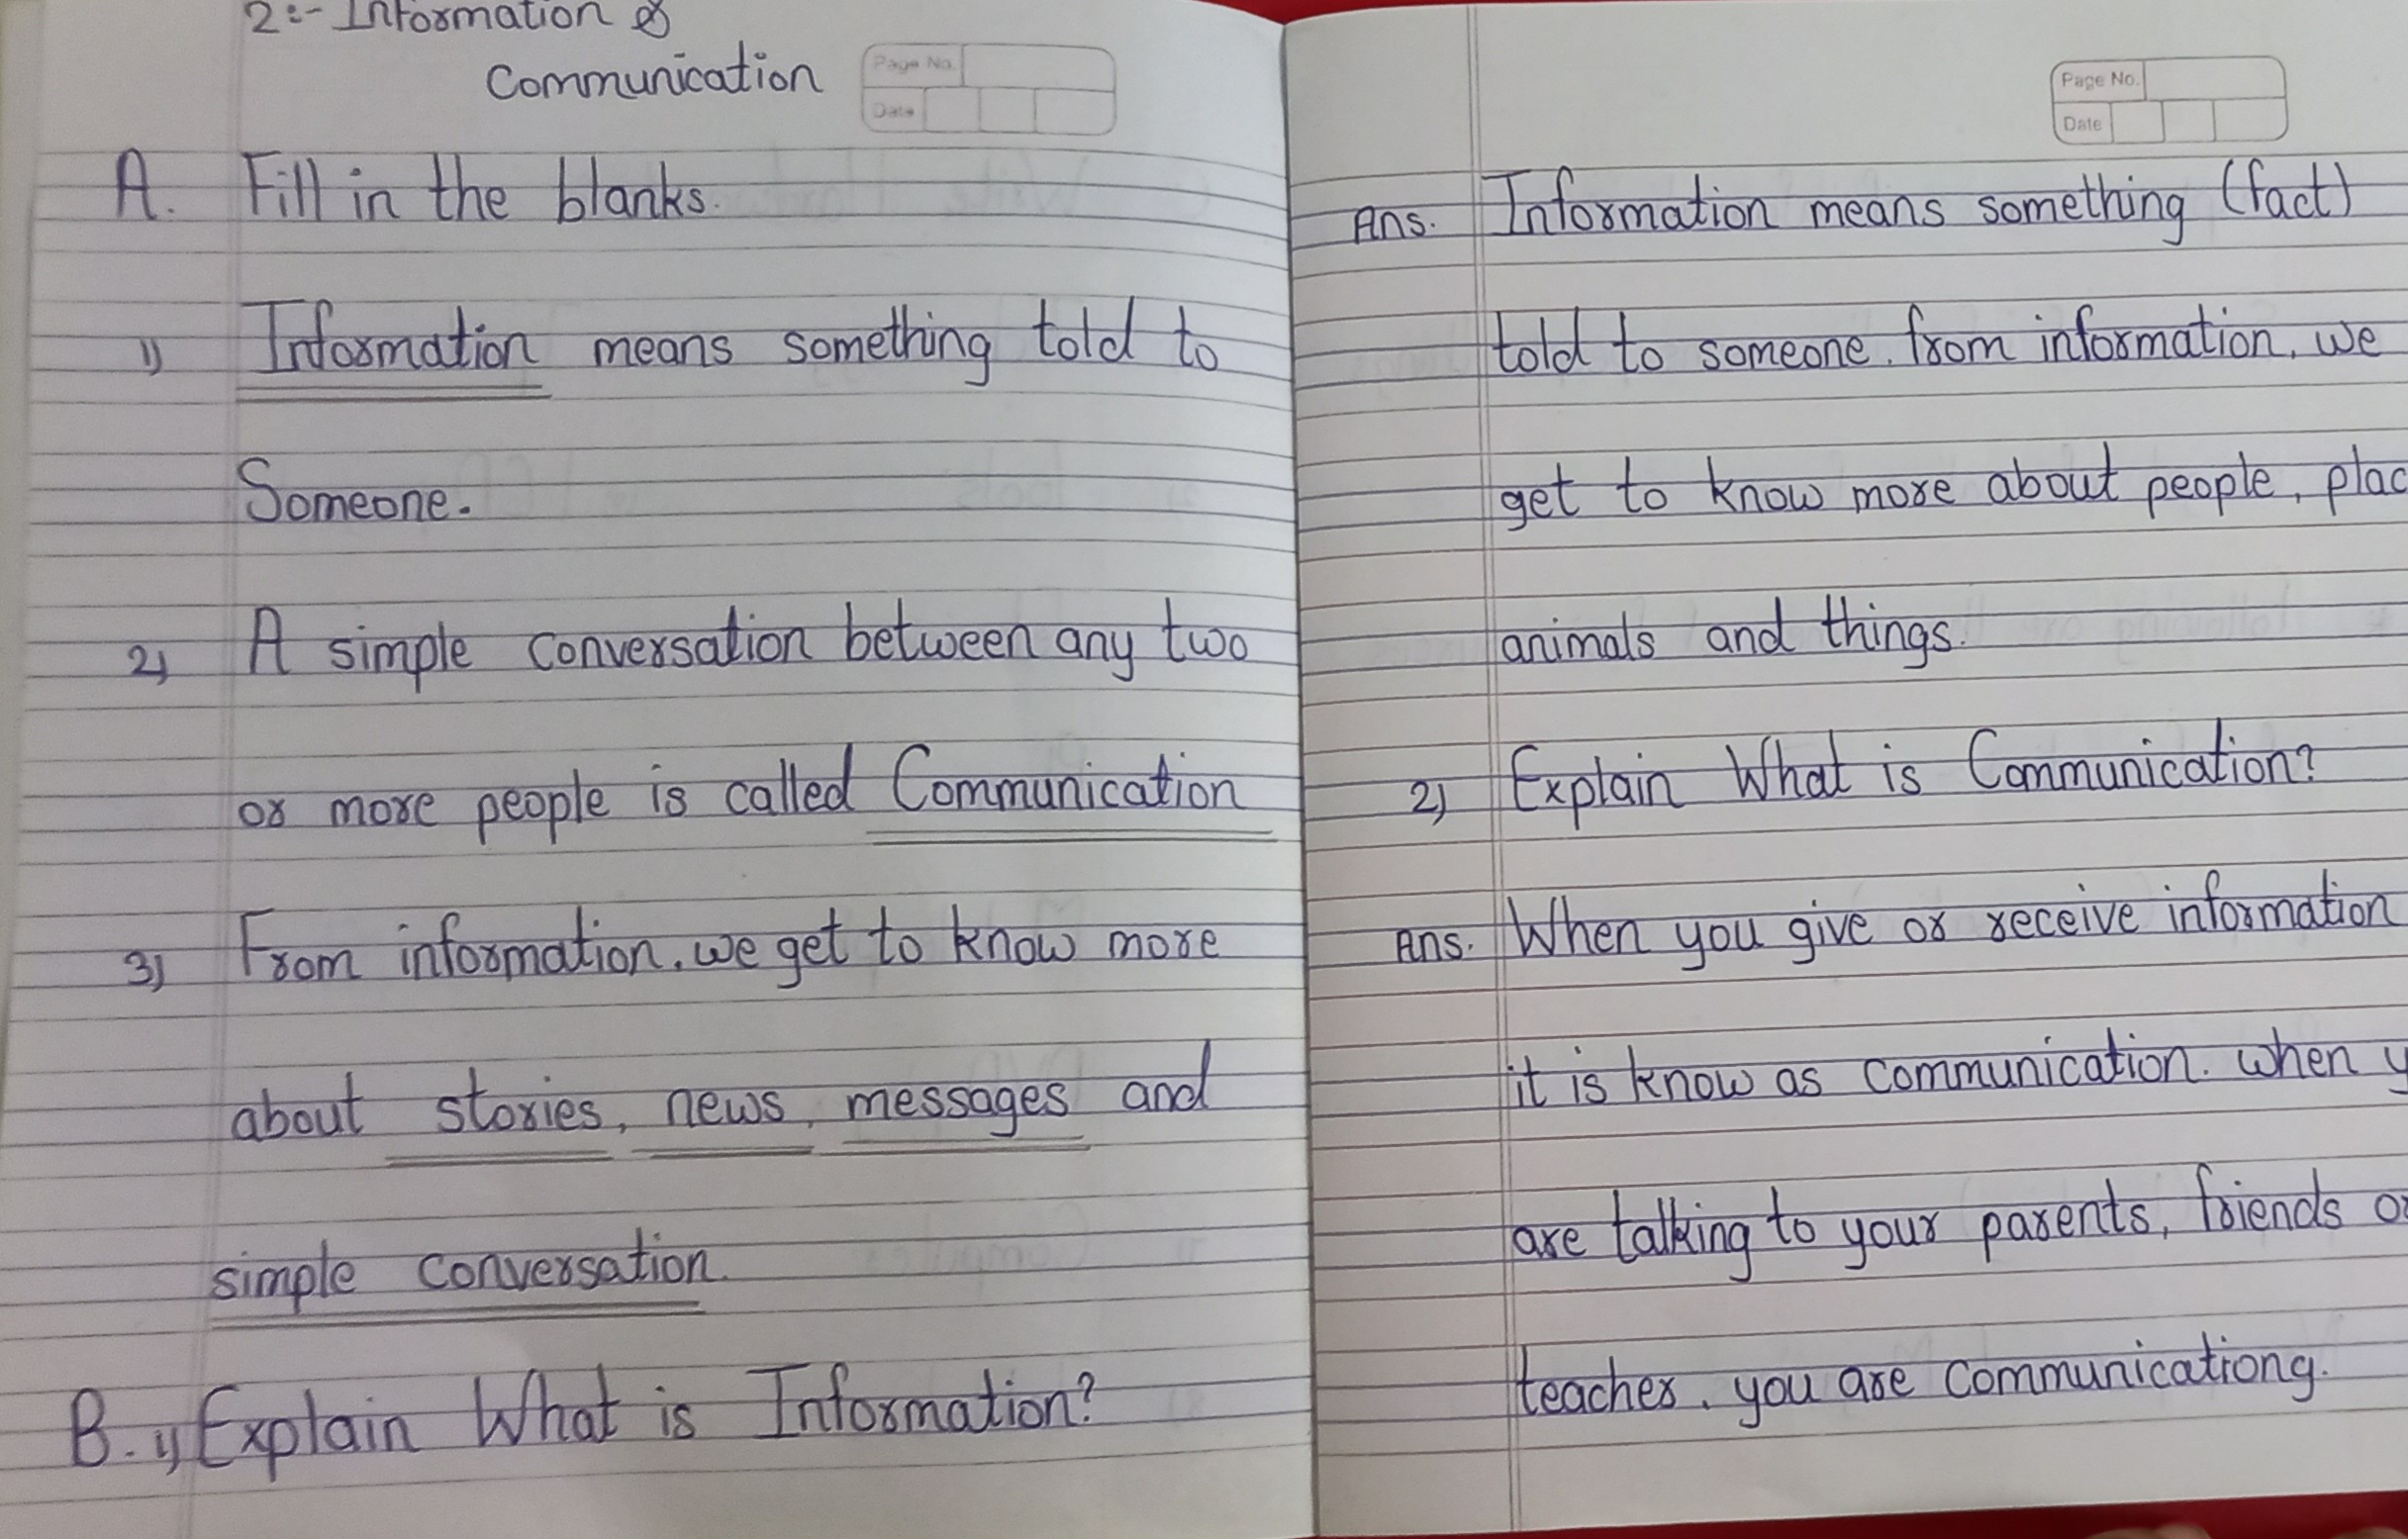 2:- Information &
Communication
Page No.
Date
A. Fill in the blanks.
1) Information means something told to
Someone.
2) A simple conversation between any two
or more people is called Communication
3) From information, we get to know more
about stories, news, messages and
simple conversation.
B. 1) Explain What is Information?
Page No.
Date
Ans. Information means something (fact)
told to someone. from information, we
get to know more about people, plac
animals and things.
2) Explain What is Communication?
Ans. When you give or receive information
it is know as communication. when y
are talking to your parents, friends or
teacher, you are communicationg.